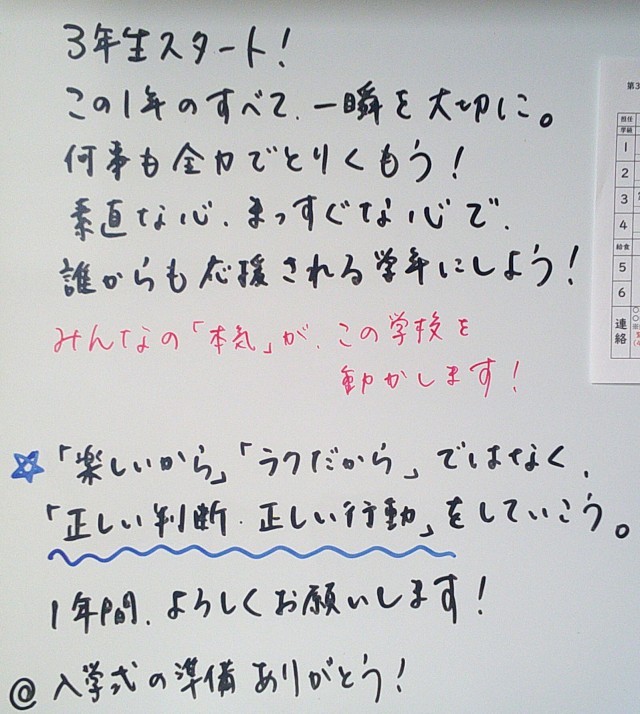 3年生スタート!
この1年のすべて、一瞬を大切に。
何事も全力でとりくもう!
素直な心、まっすぐな心で、
誰からも応援される学年にしよう!
みんなの「本気」が、この学校を
動かします!
☆「楽しいから」「ラクだから」ではなく、
「正しい判断、正しい行動」をしていこう。
1年間、よろしくお願いします!
@入学式の準備ありがとう!
第3
担任
学級
1
2
3
4
給食
5
6
連絡